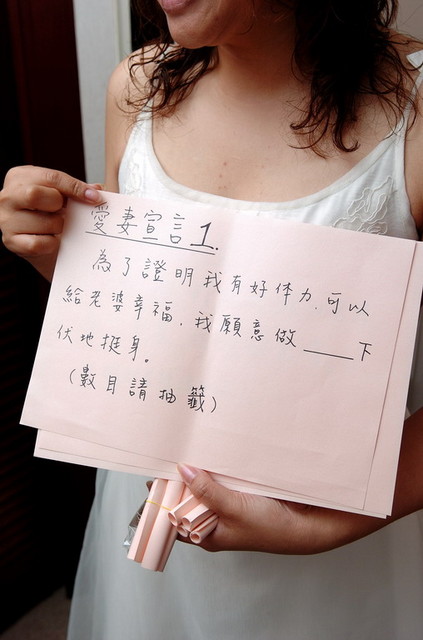 愛妻宣言1.
為了證明我有好体力,可以
給老婆幸福,我願意做____下
伏地挺身。
(數目請抽籤)